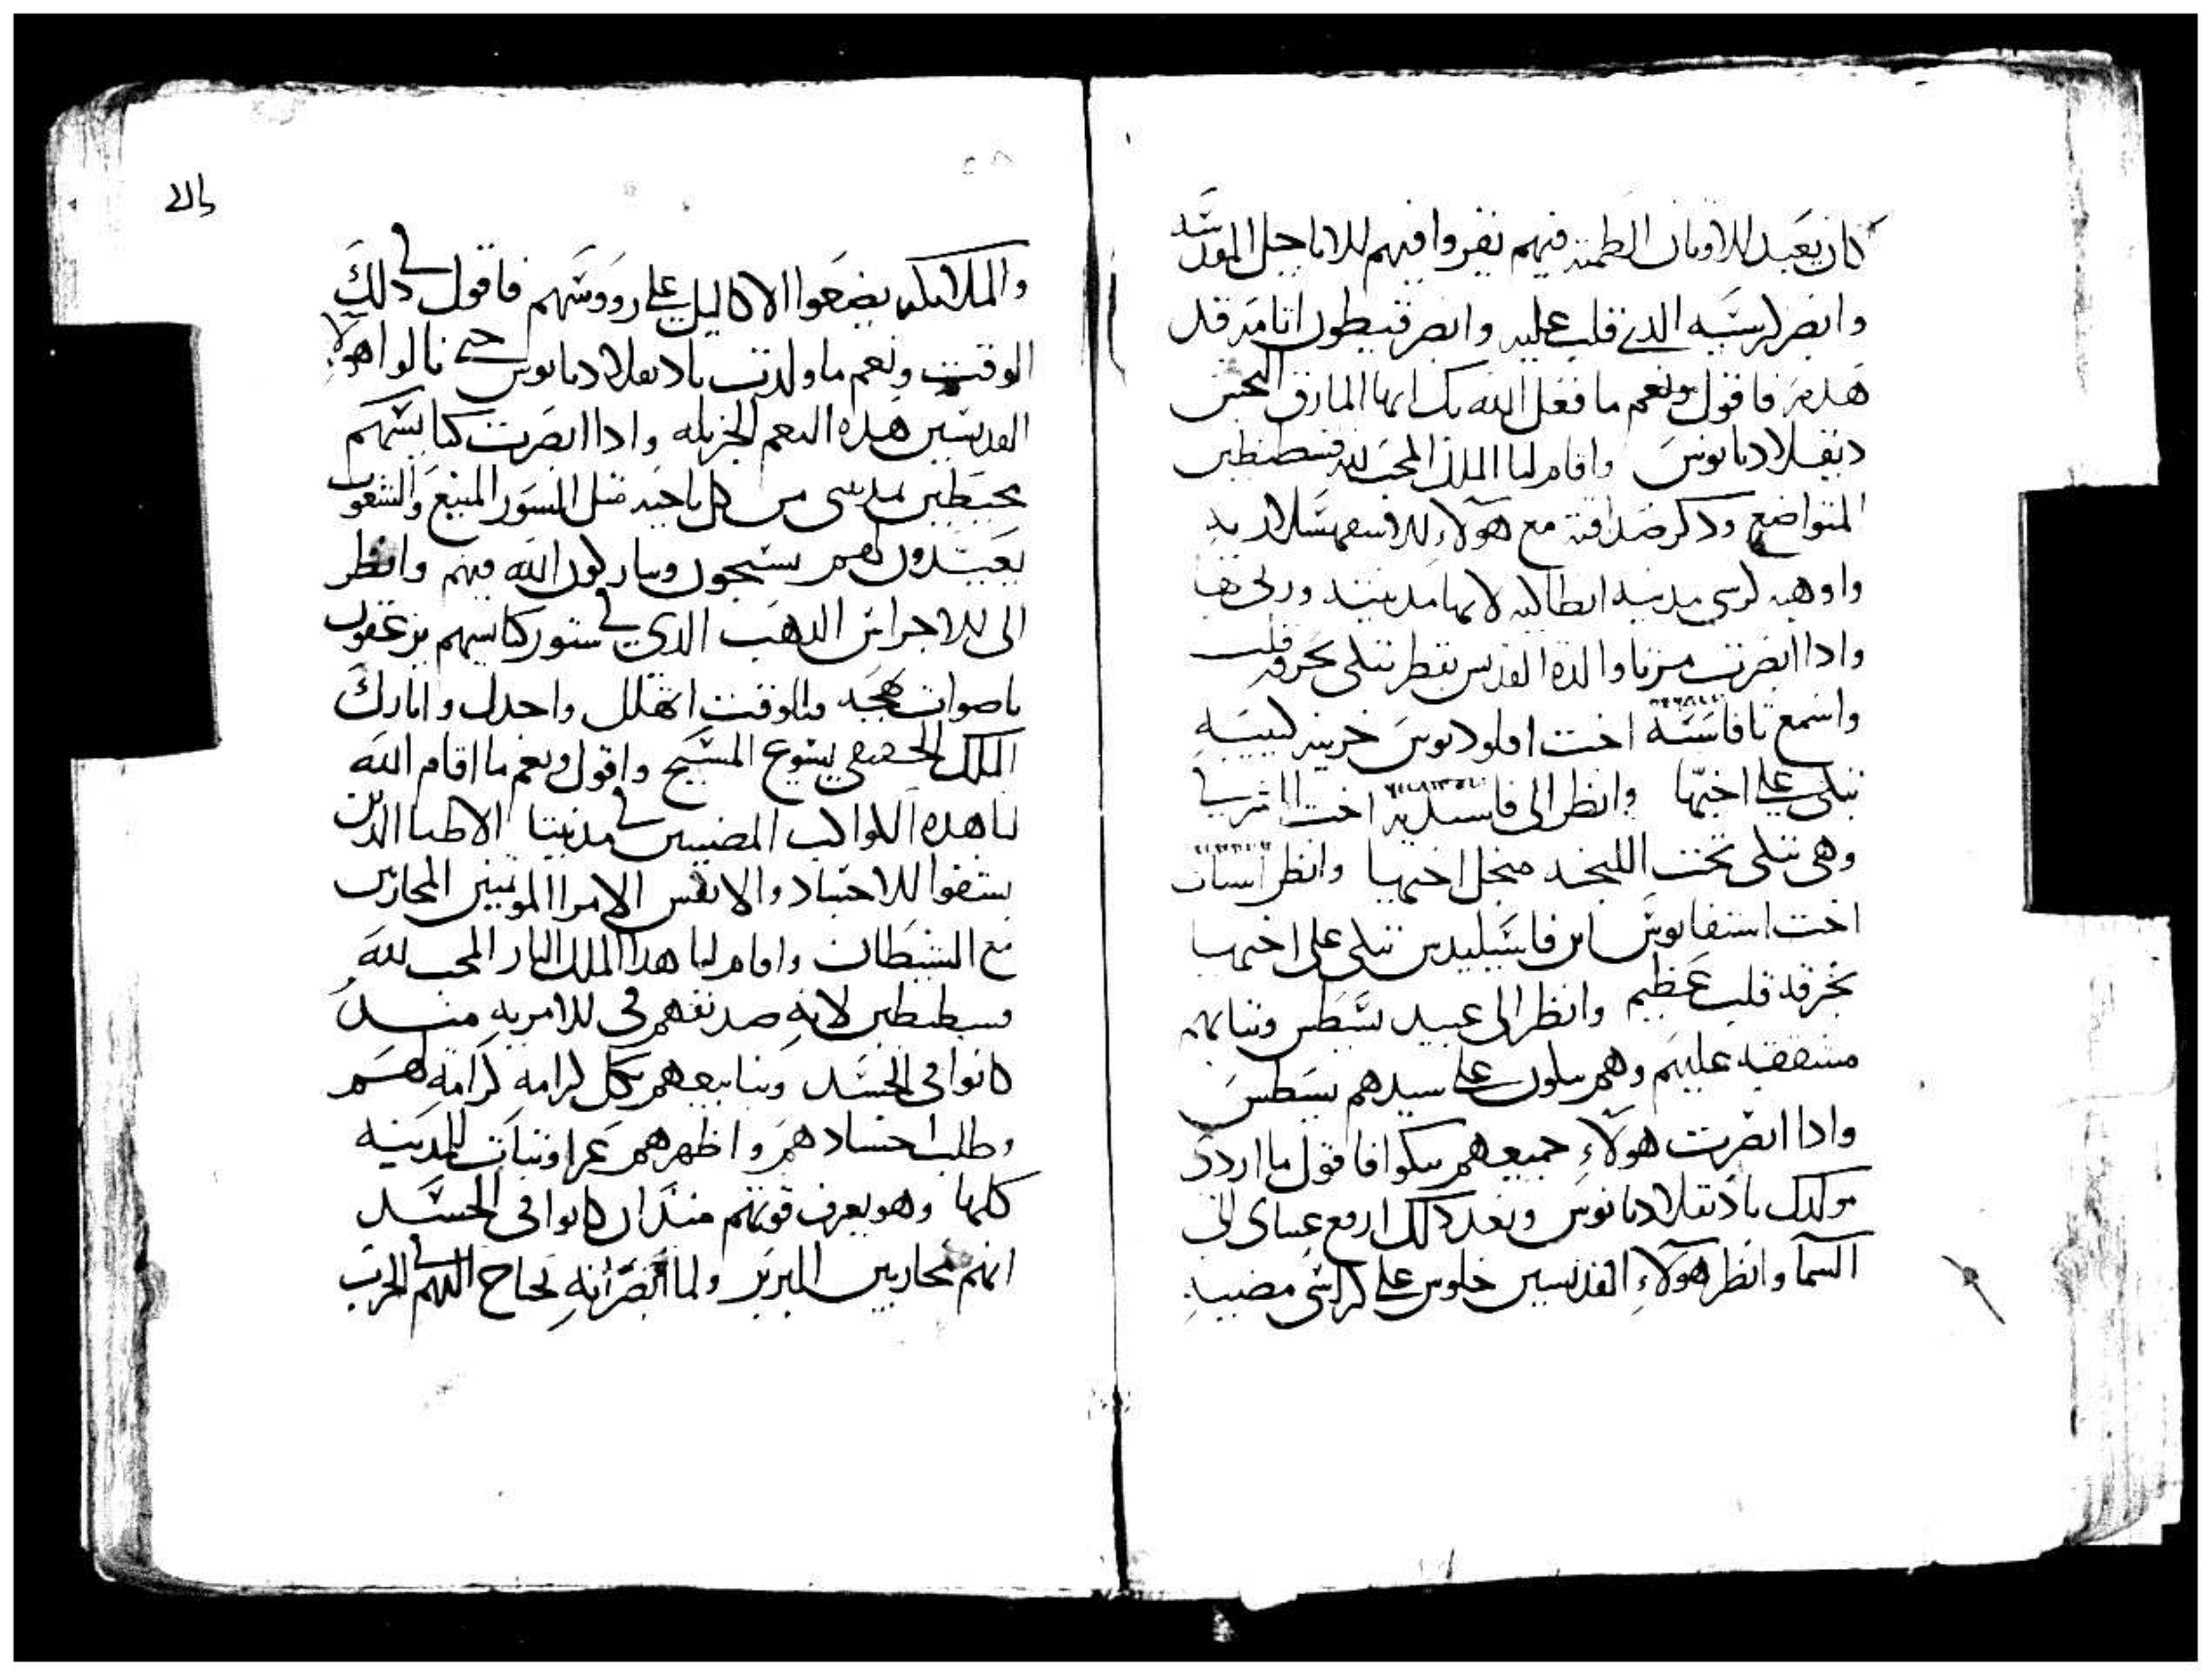 كان يعبد للاوثان الطمثه فيهم يقروا فيهم للاناجيل المقدسه
وابصر كرسيه الدي قلب عليه وابصر قيطون اتامه قد
هدم فاقول ونعم ما فعل الله بك ايها المارق النجس
دیقلادیانوس واقام لنا الملك المحب لله قسطنطين
المتواضع ودكر صداقته مع هولاء للاسفهسلاريه
واوهبه كرسي مدينه انطاكيه لانها مدينته
وادا ابصرت مرتا والدة القديس بقطر تبكي بحرقه قلب
واسمع يا فاسته اخت اقلوديوس حزينه كييبه
تبكي على اختها وانظر الى فاسيليه اخت
وهي تبكي تحت منجل اختها وانظر
اخت استفانوس ابن فاسيليدس تبكي على اخيها
بحرقه قلب عظيم وانظر الى عبيد يسطس وثيابهم
مشققه عليهم وهم يبكون على سيدهم يسطس
وادا ابصرت هولاء جميعهم يبكوا فاقول ما اردى
مولدك يا دیقلادیانوس وبعد دلك ارفع عيناي الى
السما وانظر هولاء القديسين جلوس على كراسي مضييه
والملايكه يضعوا الاكاليل على رووسهم فاقول في دلك
الوقت ونعم ما ولدت يا ديقلاديانوس حتى نالوا هولاء
القديسين هده النعم الجزيله وادا ابصرت كنايسهم
محيطين بمدينتي من كل ناحيه مثل السور المنيع والشعوب
يعيدون لهم يسبحون ويباركون الله فيهم وانظر
الى للاجراس الدهب الدي في ستور كنايسهم يزعقون
باصوات وبالوقت اتهلل واجدل وابارك
الملك الحقيقي يسوع المسيح واقول ونعم ما اقام الله
لنا هده الكواكب المضيين في مدينتنا الاطبا الدين
يشفوا للاجساد والانفس الامرا المحاربين
مع الشيطان واقام لنا هدا الملك البار المحب لله
قسطنطين لانه صديقهم في للامريه مند
كانوا في الجسد بكل كرامه كرامه لهم
وطلب اجسادهم واظهرهم عمرا وثبات للمدينه
كلها وهو يعرف قوتهم مند ان كانوا في الجسد
انهم محاربين البربر ولما ابصر انه يحتاج اليهم في الحرب